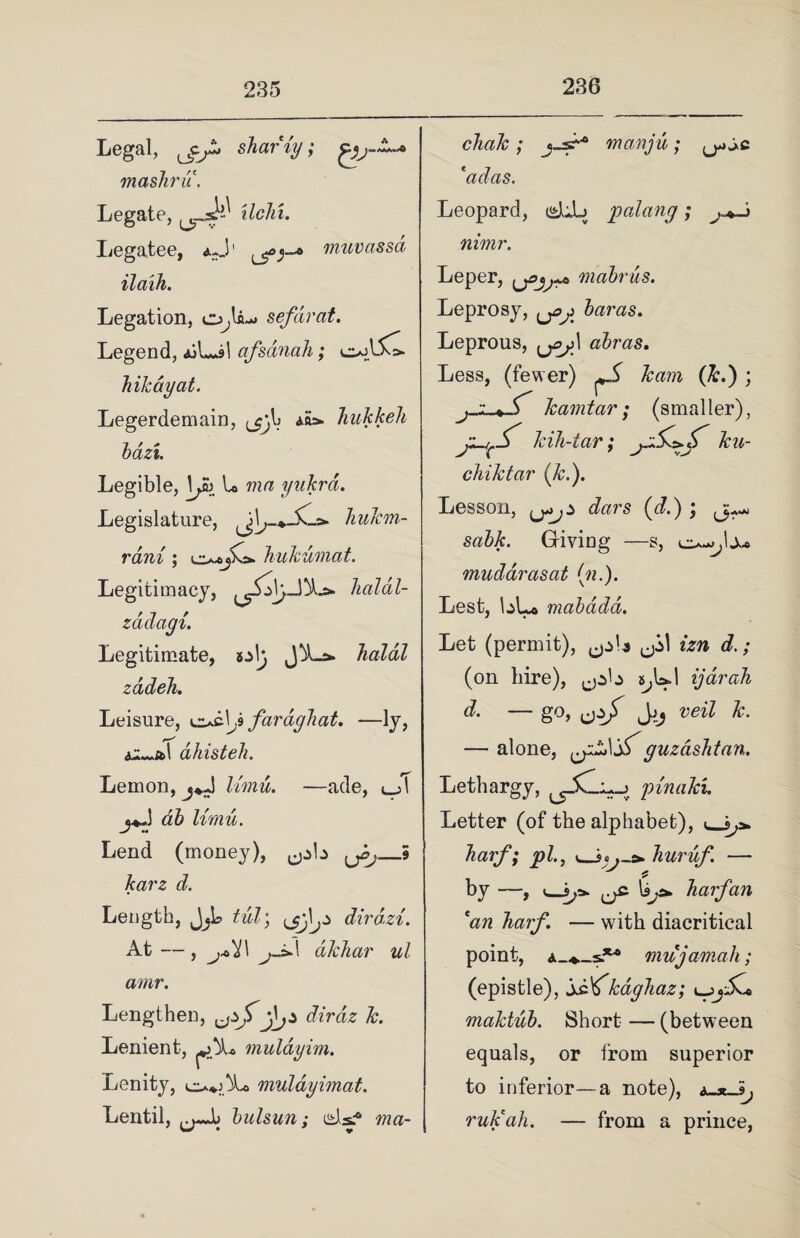 235
Legal, شرعی shar'iy; مشروع
mashrú'.
Legate, ایلچی ilchí.
Legatee, موصی الیه muvassá
ilaih.
Legation, سفارت sefárat.
Legend, افسانه afsánah; حکایت
hikáyat.
Legerdemain, حقه بازی hukkeh
bází.
Legible, ما یقرا ma yukrá.
Legislature, حکمرانی hukm-
rání; حکومت hukúmat.
Legitimacy, حلالزادگی halál-
zádagí.
Legitimate, حلال زاده halál
zádeh.
Leisure, فراغت farághat. —ly,
آهسته áhisteh.
Lemon, لیمو límú. —ade, آب
لیمو áb límú.
Lend (money), قرض دادن
karz d.
Length, طول túl; درازی dirází.
At —, آخر الامر ákhar ul
amr.
Lengthen, دراز کردن diráz k.
Lenient, ملایم muláyim.
Lenity, ملایمت muláyimat.
Lentil, بلسن bulsun; مچك ma-
236
chak; منجو manjú; عدس
'adas.
Leopard, پلنك palang; نمر
nimr.
Leper, مبروص mabrús.
Leprosy, برص baras.
Leprous, ابرص abras.
Less, (fewer) کم kam (k.);
کمتر kamtar; (smaller),
کهتر kih-tar; کوچکتر ku-
chiktar (k.).
Lesson, درس dars (d.); سبق
sabk. Giving —s, مدارست
mudárasat (n.).
Lest, مبادا mabádá.
Let (permit), اذن دادن izn d.;
(on hire), اجاره دادن ijárah
d. — go, ول کردن veil k.
— alone, گذاشتن guzáshtan.
Lethargy, پینکی pínakí.
Letter (of the alphabet), حرف
harf; pl., حروف hurúf. —
by —, حرفا عن حرف harfan
'an harf. — with diacritical
point, معجمه mu'jamah;
(epistle), کاغذ kághaz; مکتوب
maktúb. Short — (between
equals, or from superior
to inferior—a note), رقعه
ruk'ah. — from a prince,